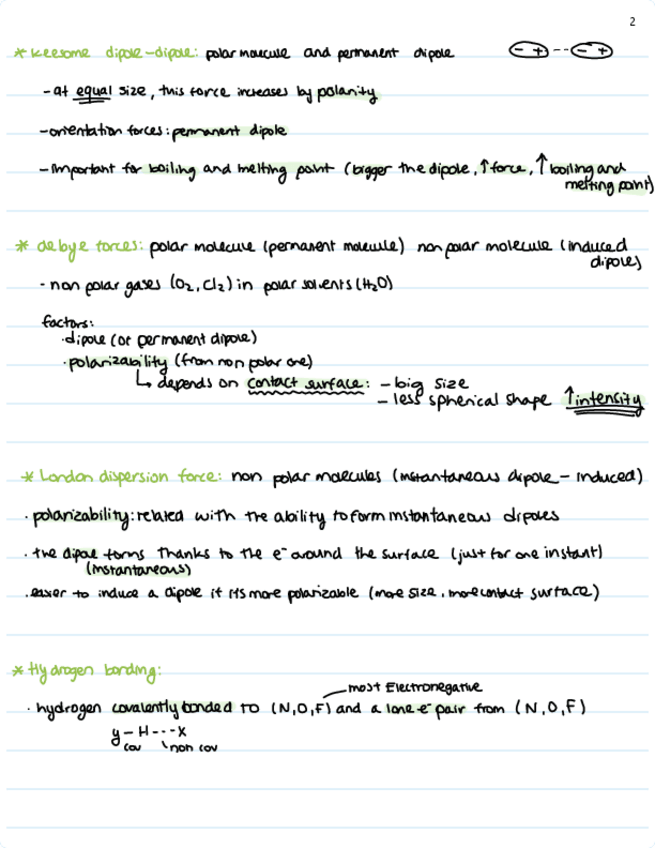 2
* Keesome dipole-dipole: polar molecule and permanent dipole
- + -- - +
- at equal size, this force increases by polarity
- orientation forces: permanent dipole
- important for boiling and melting point (bigger the dipole, ↑ force, ↑ boiling and
melting point)
* debye forces: polar molecule (permanent molecule) non polar molecule (induced
dipole)
- non polar gases (O₂, Cl₂) in polar solvents (H₂O)
factors:
· dipole (of permanent dipole)
· polarizability (from non polar one)
↳ depends on contact surface: - big size
- less spherical shape ↑ intensity
* London dispersion force: non polar molecules (instantaneous dipole - induced)
· polarizability: related with the ability to form instantaneous dipoles
· the dipole forms thanks to the e⁻ around the surface (just for one instant)
(instantaneous)
· easier to induce a dipole if its more polarizable (more size, more contact surface)
* Hydrogen bonding:
most Electronegative
· hydrogen covalently bonded to (N,O,F) and a lone e⁻ pair from (N,O,F)
y - H --- X
cov non cov